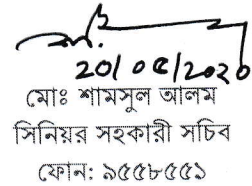 20/05/2020
মোঃ শামসুল আলম
সিনিয়র সহকারী সচিব
ফোন: ৯৫৫৮৫৫১